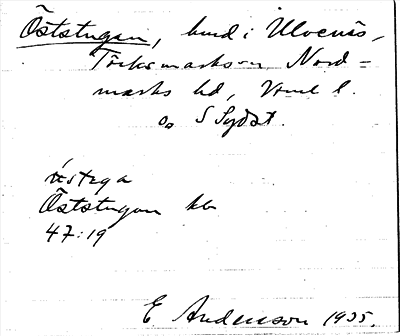 Öststugan, hmd i Ulvenäs,
Töcksmarks sn Nord=
marks hd, Vrml l.
o. S Sydöst.
östega
Öststugan kb
47:19
E Andersson 1935.